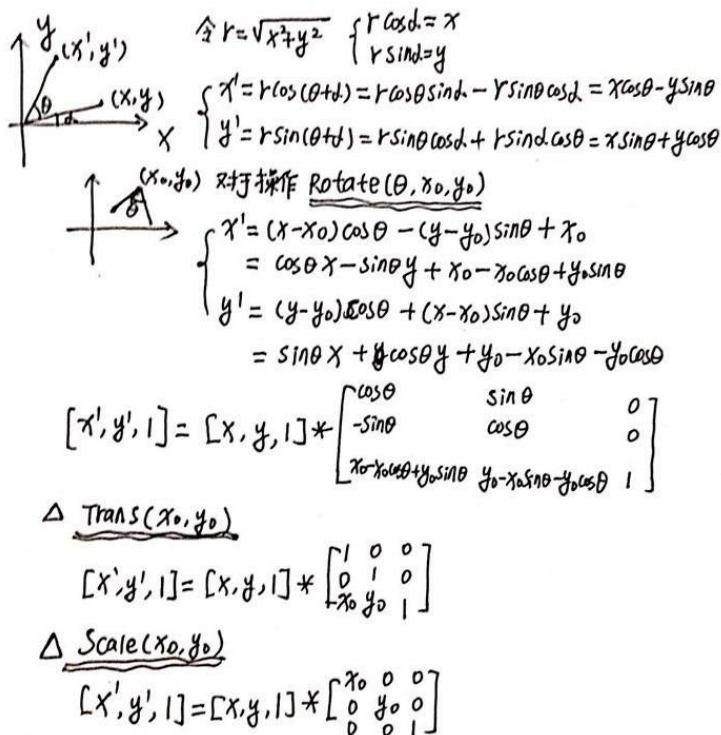 y
(x',y')
(x,y)
θ
α
x
令 r=√x²+y² { r cosα = x
r sinα=y
{ x'=rcos(θ+α)=rcosθsinα-rsinθcosα = xcosθ-ysinθ
y'=rsin(θ+α)=rsinθcosα+rsinαcosθ=xsinθ+ycosθ
(x₀,y₀) 对于操作 Rotate(θ,x₀,y₀)
θ
{ x'=(x-x₀)cosθ-(y-y₀)sinθ+x₀
= cosθx-sinθy+x₀-x₀cosθ+y₀sinθ
y'=(y-y₀)cosθ+(x-x₀)sinθ+y₀
= sinθx+cosθy+y₀-x₀sinθ-y₀cosθ
cosθ sinθ 0
[x',y',1]=[x,y,1]* -sinθ cosθ 0
x₀-x₀cosθ+y₀sinθ y₀-x₀sinθ-y₀cosθ 1
Δ Trans(x₀,y₀)
1 0 0
[x',y',1]=[x,y,1]* 0 1 0
x₀ y₀ 1
Δ Scale(x₀,y₀)
x₀ 0 0
[x',y',1]=[x,y,1]* 0 y₀ 0
0 0 1